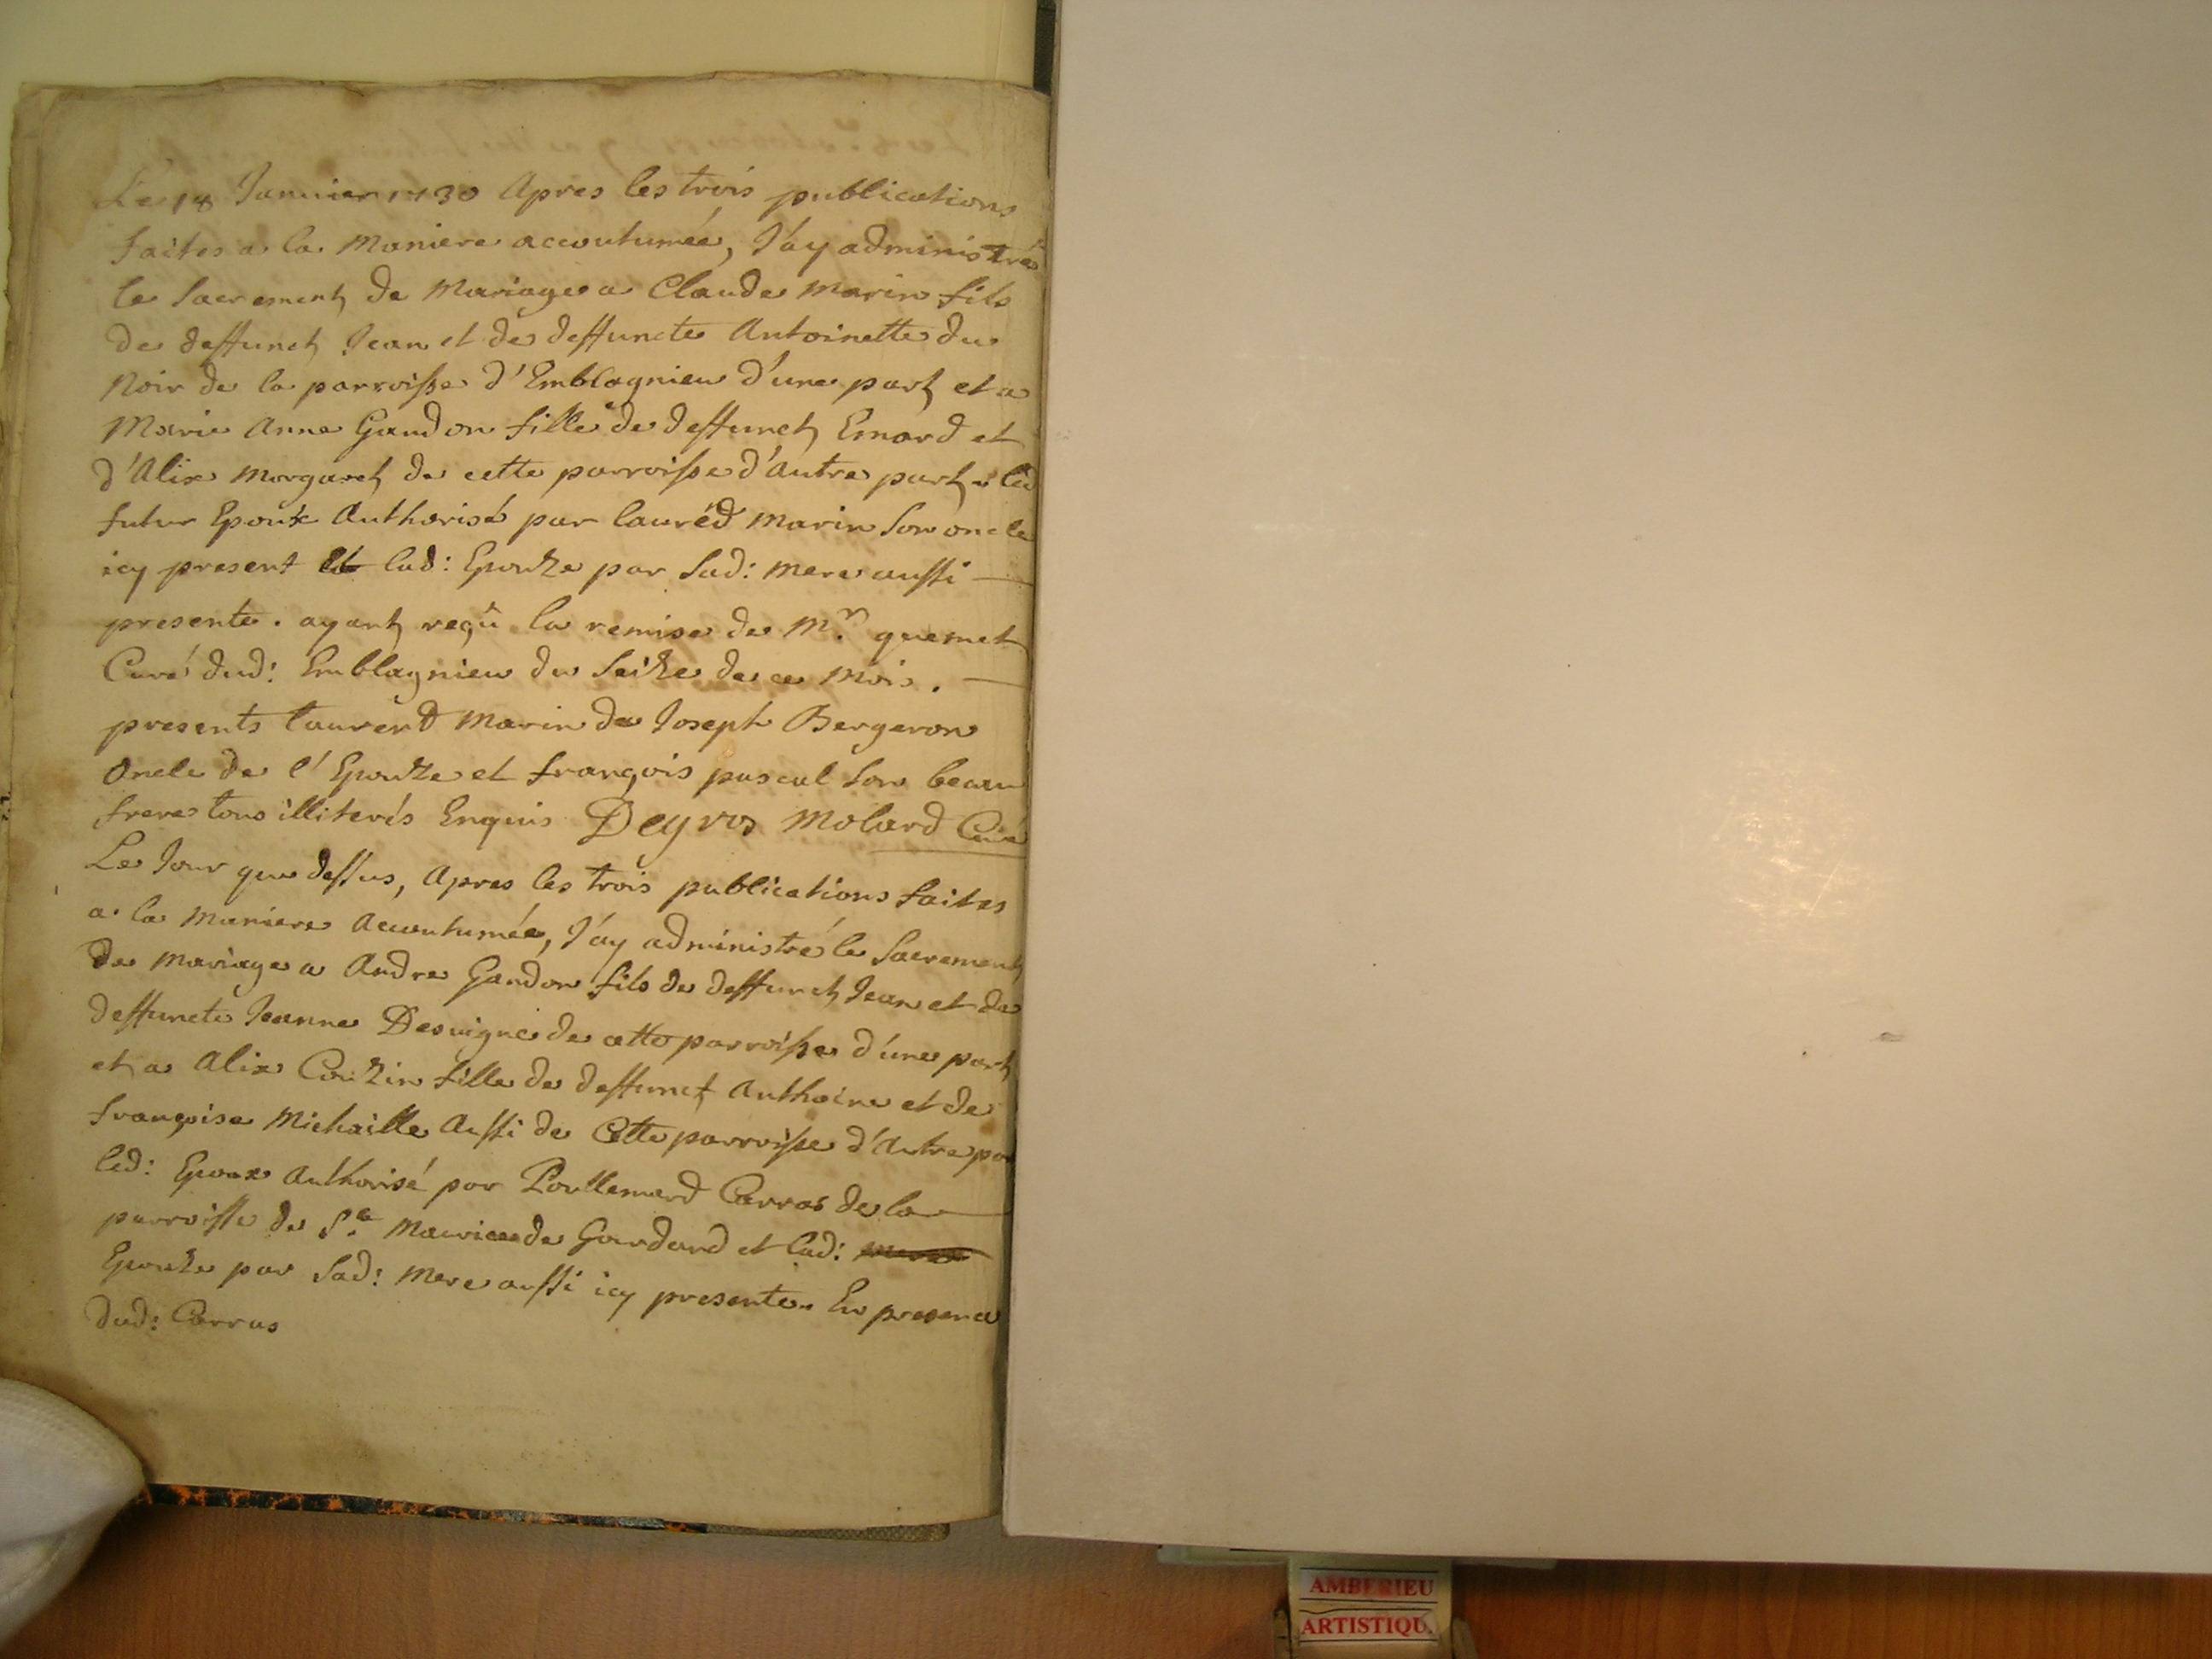 Le 18 Januier 1730 Apres les trois publications
faites a la Maniere accoutumée, J'ay administré
le Sacrement de Mariage a Claude Marin fils
de deffunct Jean et de deffuncte Antoinette du
Noir de la parroisse d'Emblagnieu d'une part et a
Marie Anne Gandon fille de deffunct Emard et
d'Alix Morgaret de cette parroisse d'Autre part led
futur Epoux Authorisé par Marin Son oncle
icy present et lad: Epouze par Sad: Mere aussi
presente. ayant reçû la remise de Mr. quemet
Curé dud: Emblagnieu du Seize de ce Mois.
presents Laurent Marin de Joseph Bergeron
Oncle de l'Epouze et françois pascal Son beau
frere tous illiterés Enquis Deyros Molard Curé
Le Jour que dessus, Apres les trois publications faites
a la Maniere Accoutumée, J'ay administré le Sacrement
de Mariage a Andre Gandon fils de deffunct Jean et de
deffuncte Jeanne Desuigne de cette parroisse d'une part
et a Alix Couzin fille de deffunct Anthoine et de
françoise Michaille Aussi de Cette parroisse d'Autre pa
led: Epoux Authorisé par Carras de la
parroisse de St. Maurice de Gourdand et lad:
Epouze par Sad: Mere aussi icy presente. En presence
dud: Carras
AMBERIEU
ARTISTIQU.